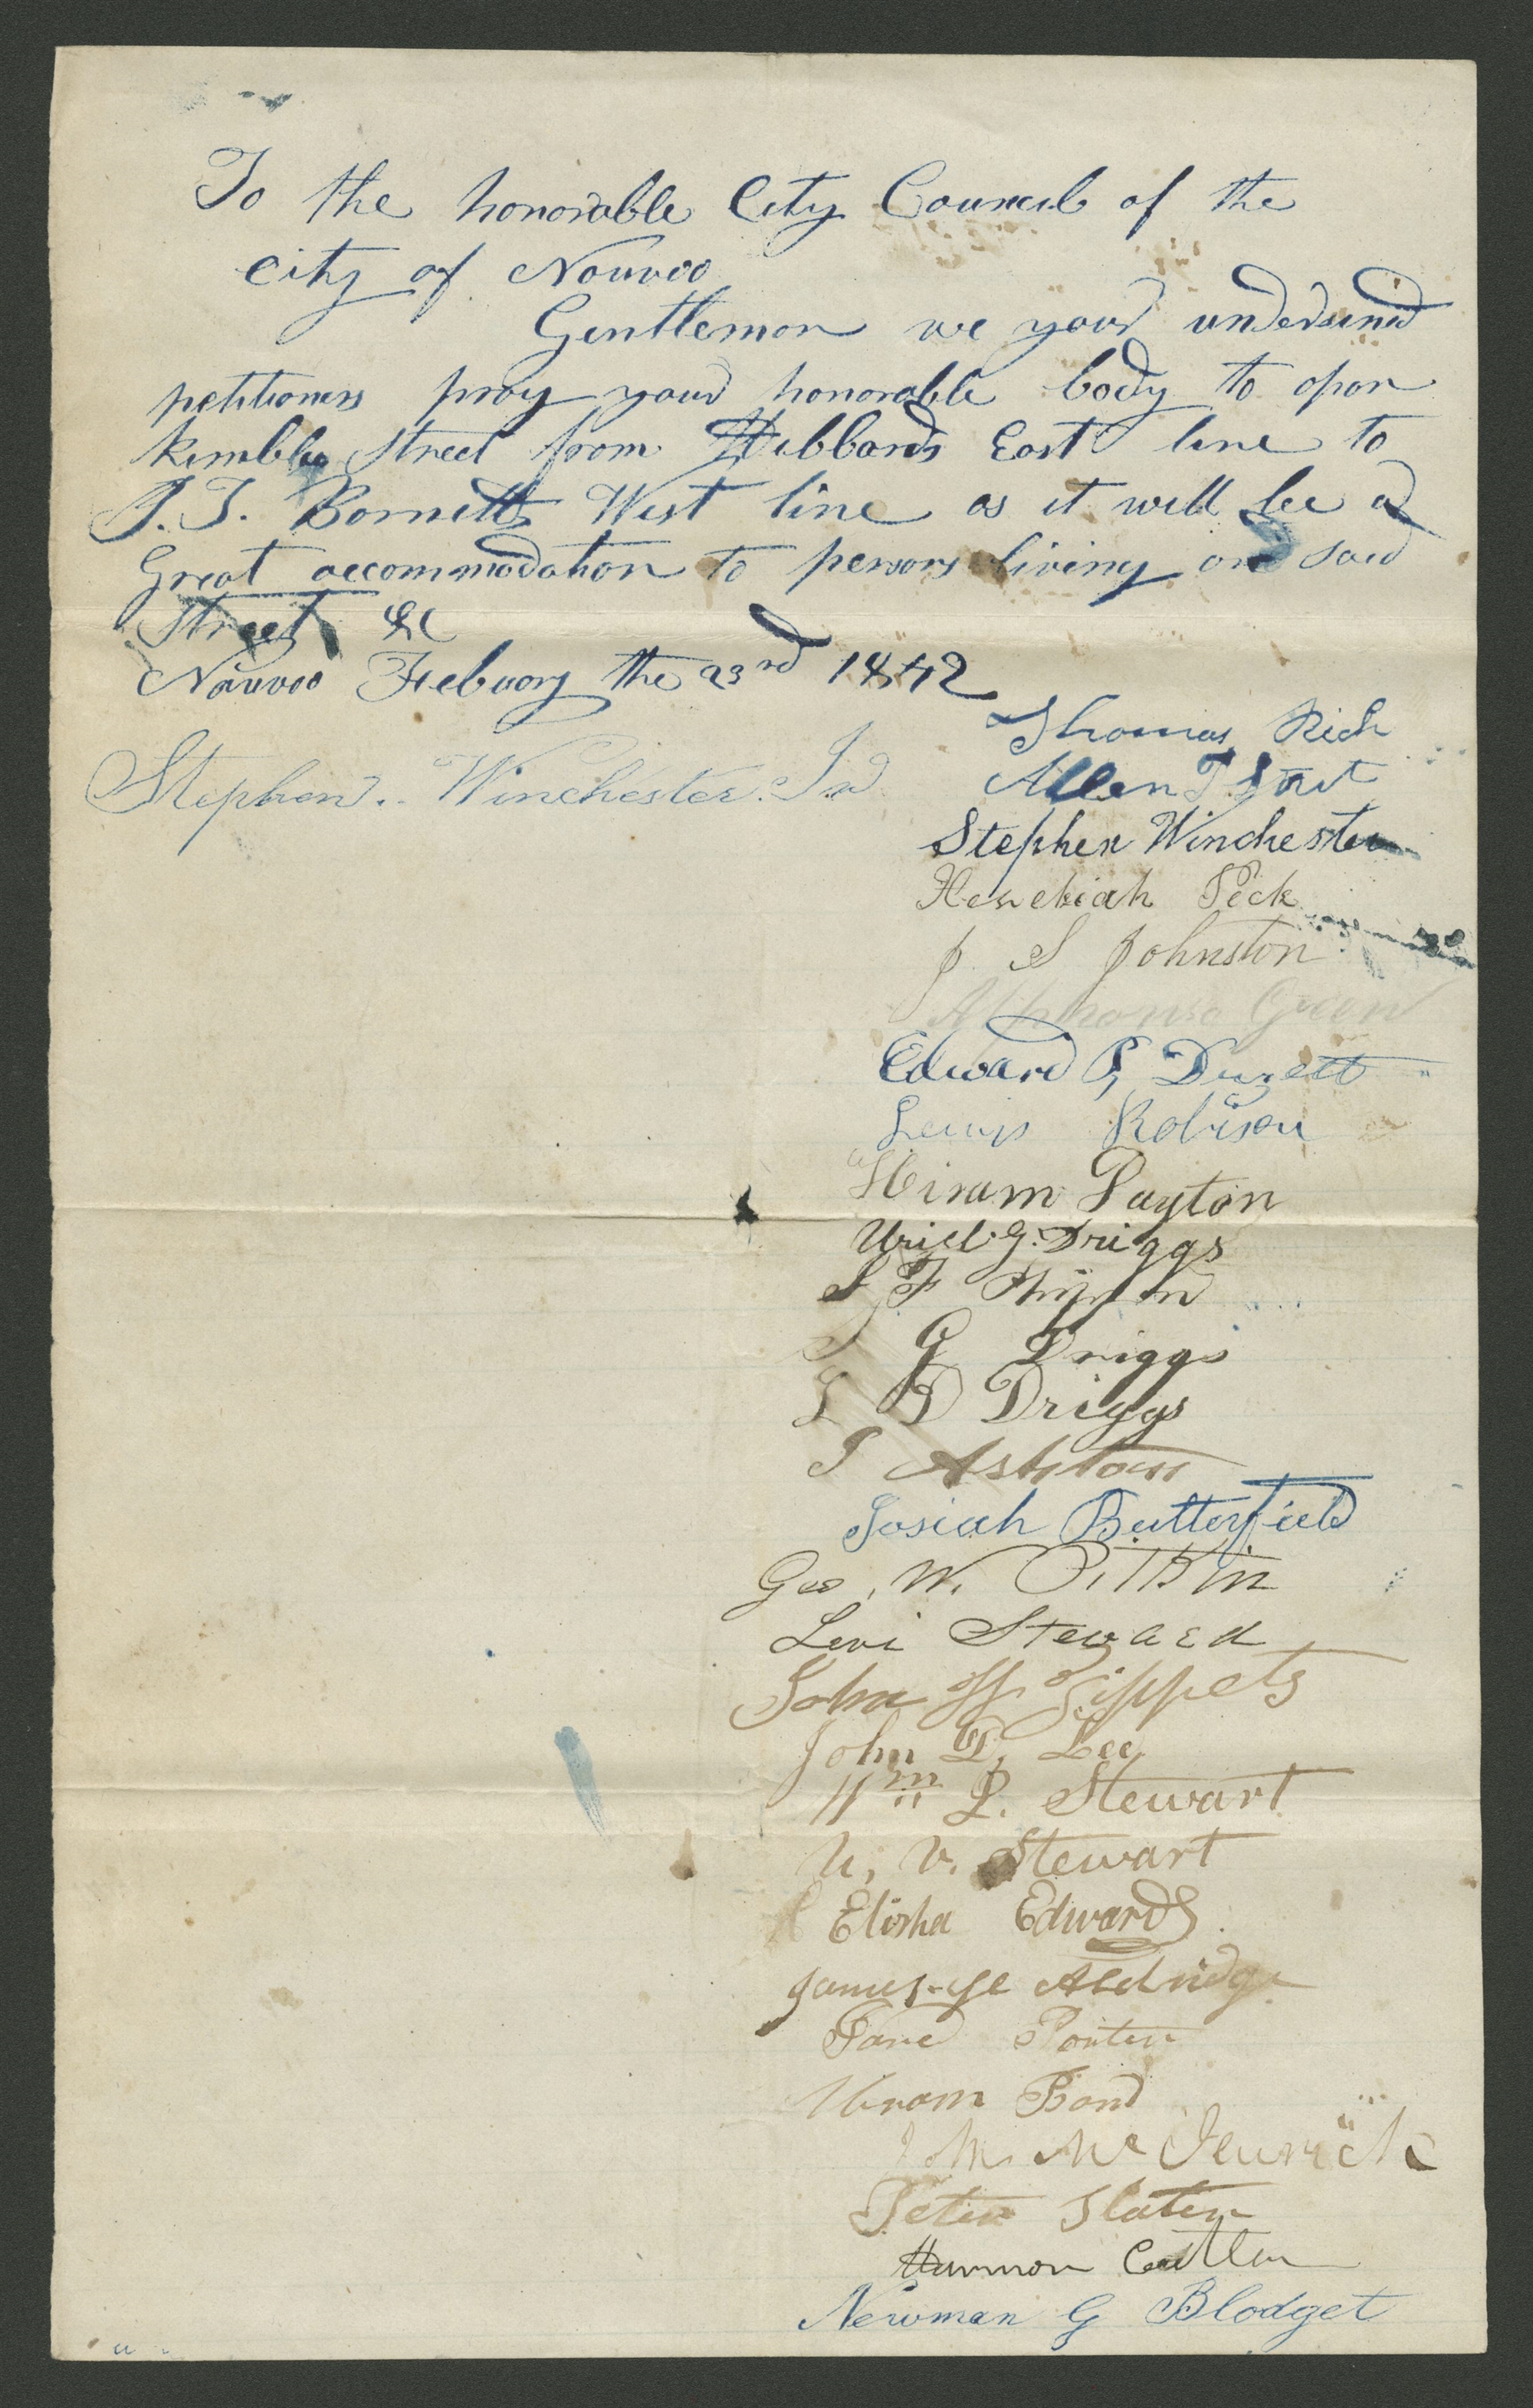 To the honorable City Council of the
city of Nouvoo
Gentlemon we your undersined
petitioners pray your honorable body to opon
Kimble Street from Hibbards East line to
J. T. Bornetts West line as it will be a
Great accommodation to persons living on said
Street &c
Nauvoo Febuary the 23rd 1842
Thomas Rich
Stephen. Winchester. Jr
Allen T
Stephen Winchester
Hezekiah Peck
J S Johnston
Alphonso Green
Edward P Duzett
Lewis Robison
Hiram Dayton
Uriel G. Driggs
S F
S G Driggs
L D Driggs
Ashton
Josiah Butterfield
Geo. W. Pitkin
Levi Steward
John H Tippets
John D. Lee
Wm P. Stewart
U. V. Stewart
Elisha Edwards
James Aldridge
Porter
Bond
Mc
Peter Slater
Harmon Cutler
Newman G Blodget